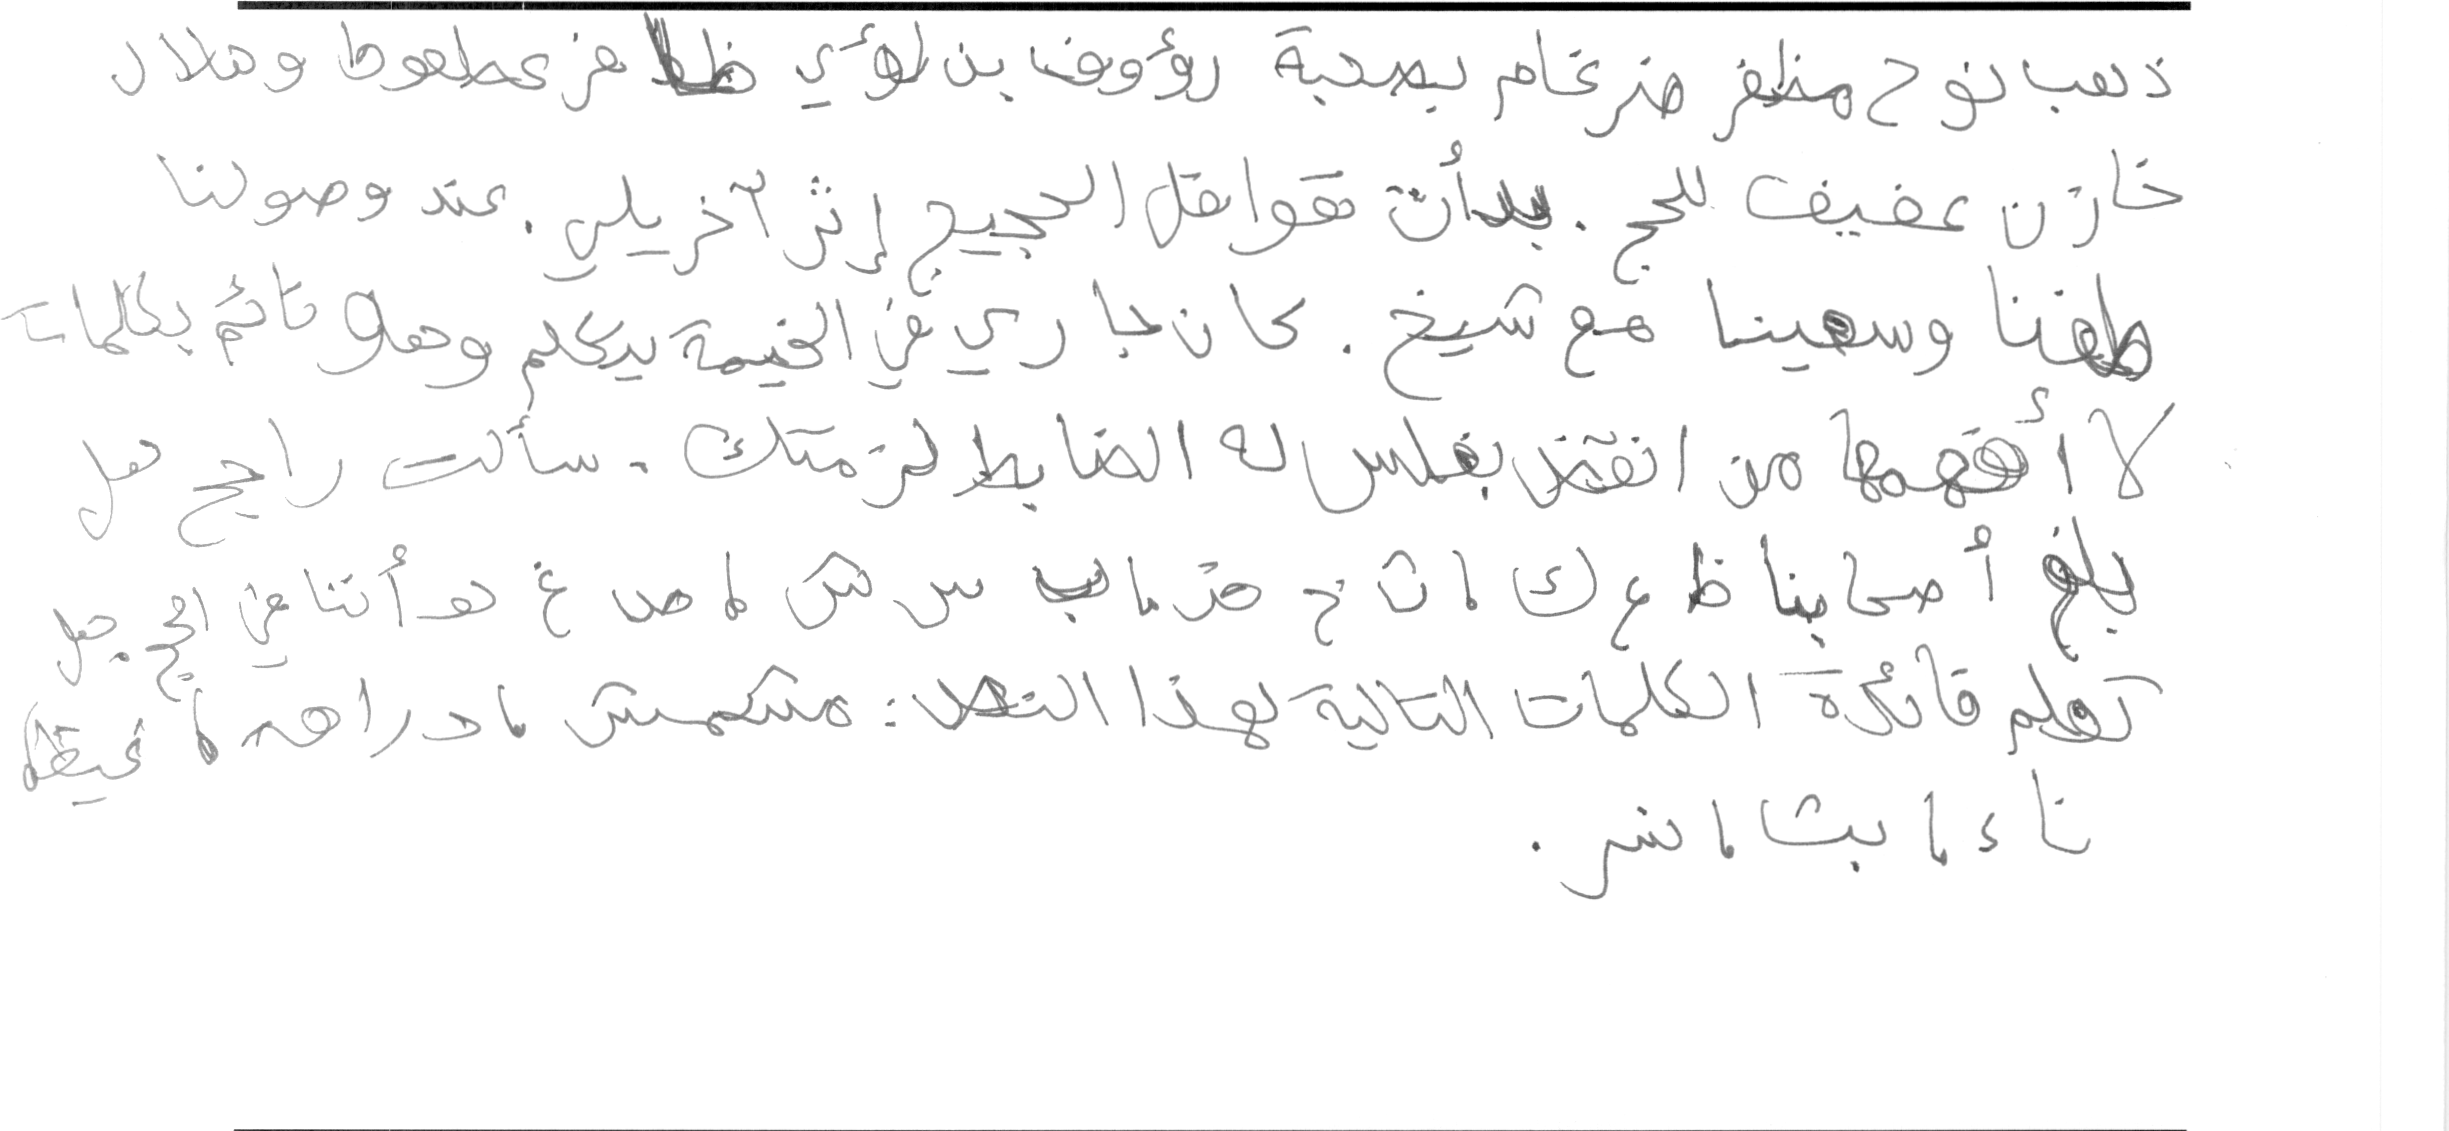 ذهب نوح مظفر ضرغام بصحبة رؤوف بن لؤي ظافر عطعوط وهلال
خازن عفيف للحج . بدأت قوافل الحجيج إثر آخر يلي . عند وصولنا
طفنا وسعينا مع شيخ . كان جاري في الخيمة يتكلم وهو نائم بكلمات
لا أفهمها من انقض بفلس له الضابط لزمتك . سألت راجح هل
بلغ أصحابنا ظ ع ك ا ث ح ض ا ب س ش ا ص غ هـ أتنا في الحج هل
تعلم قائزة الكلمات التالية لهذا النص : مشمش ا دراهم ا غيظ ا
ناء ا بث ا شر .